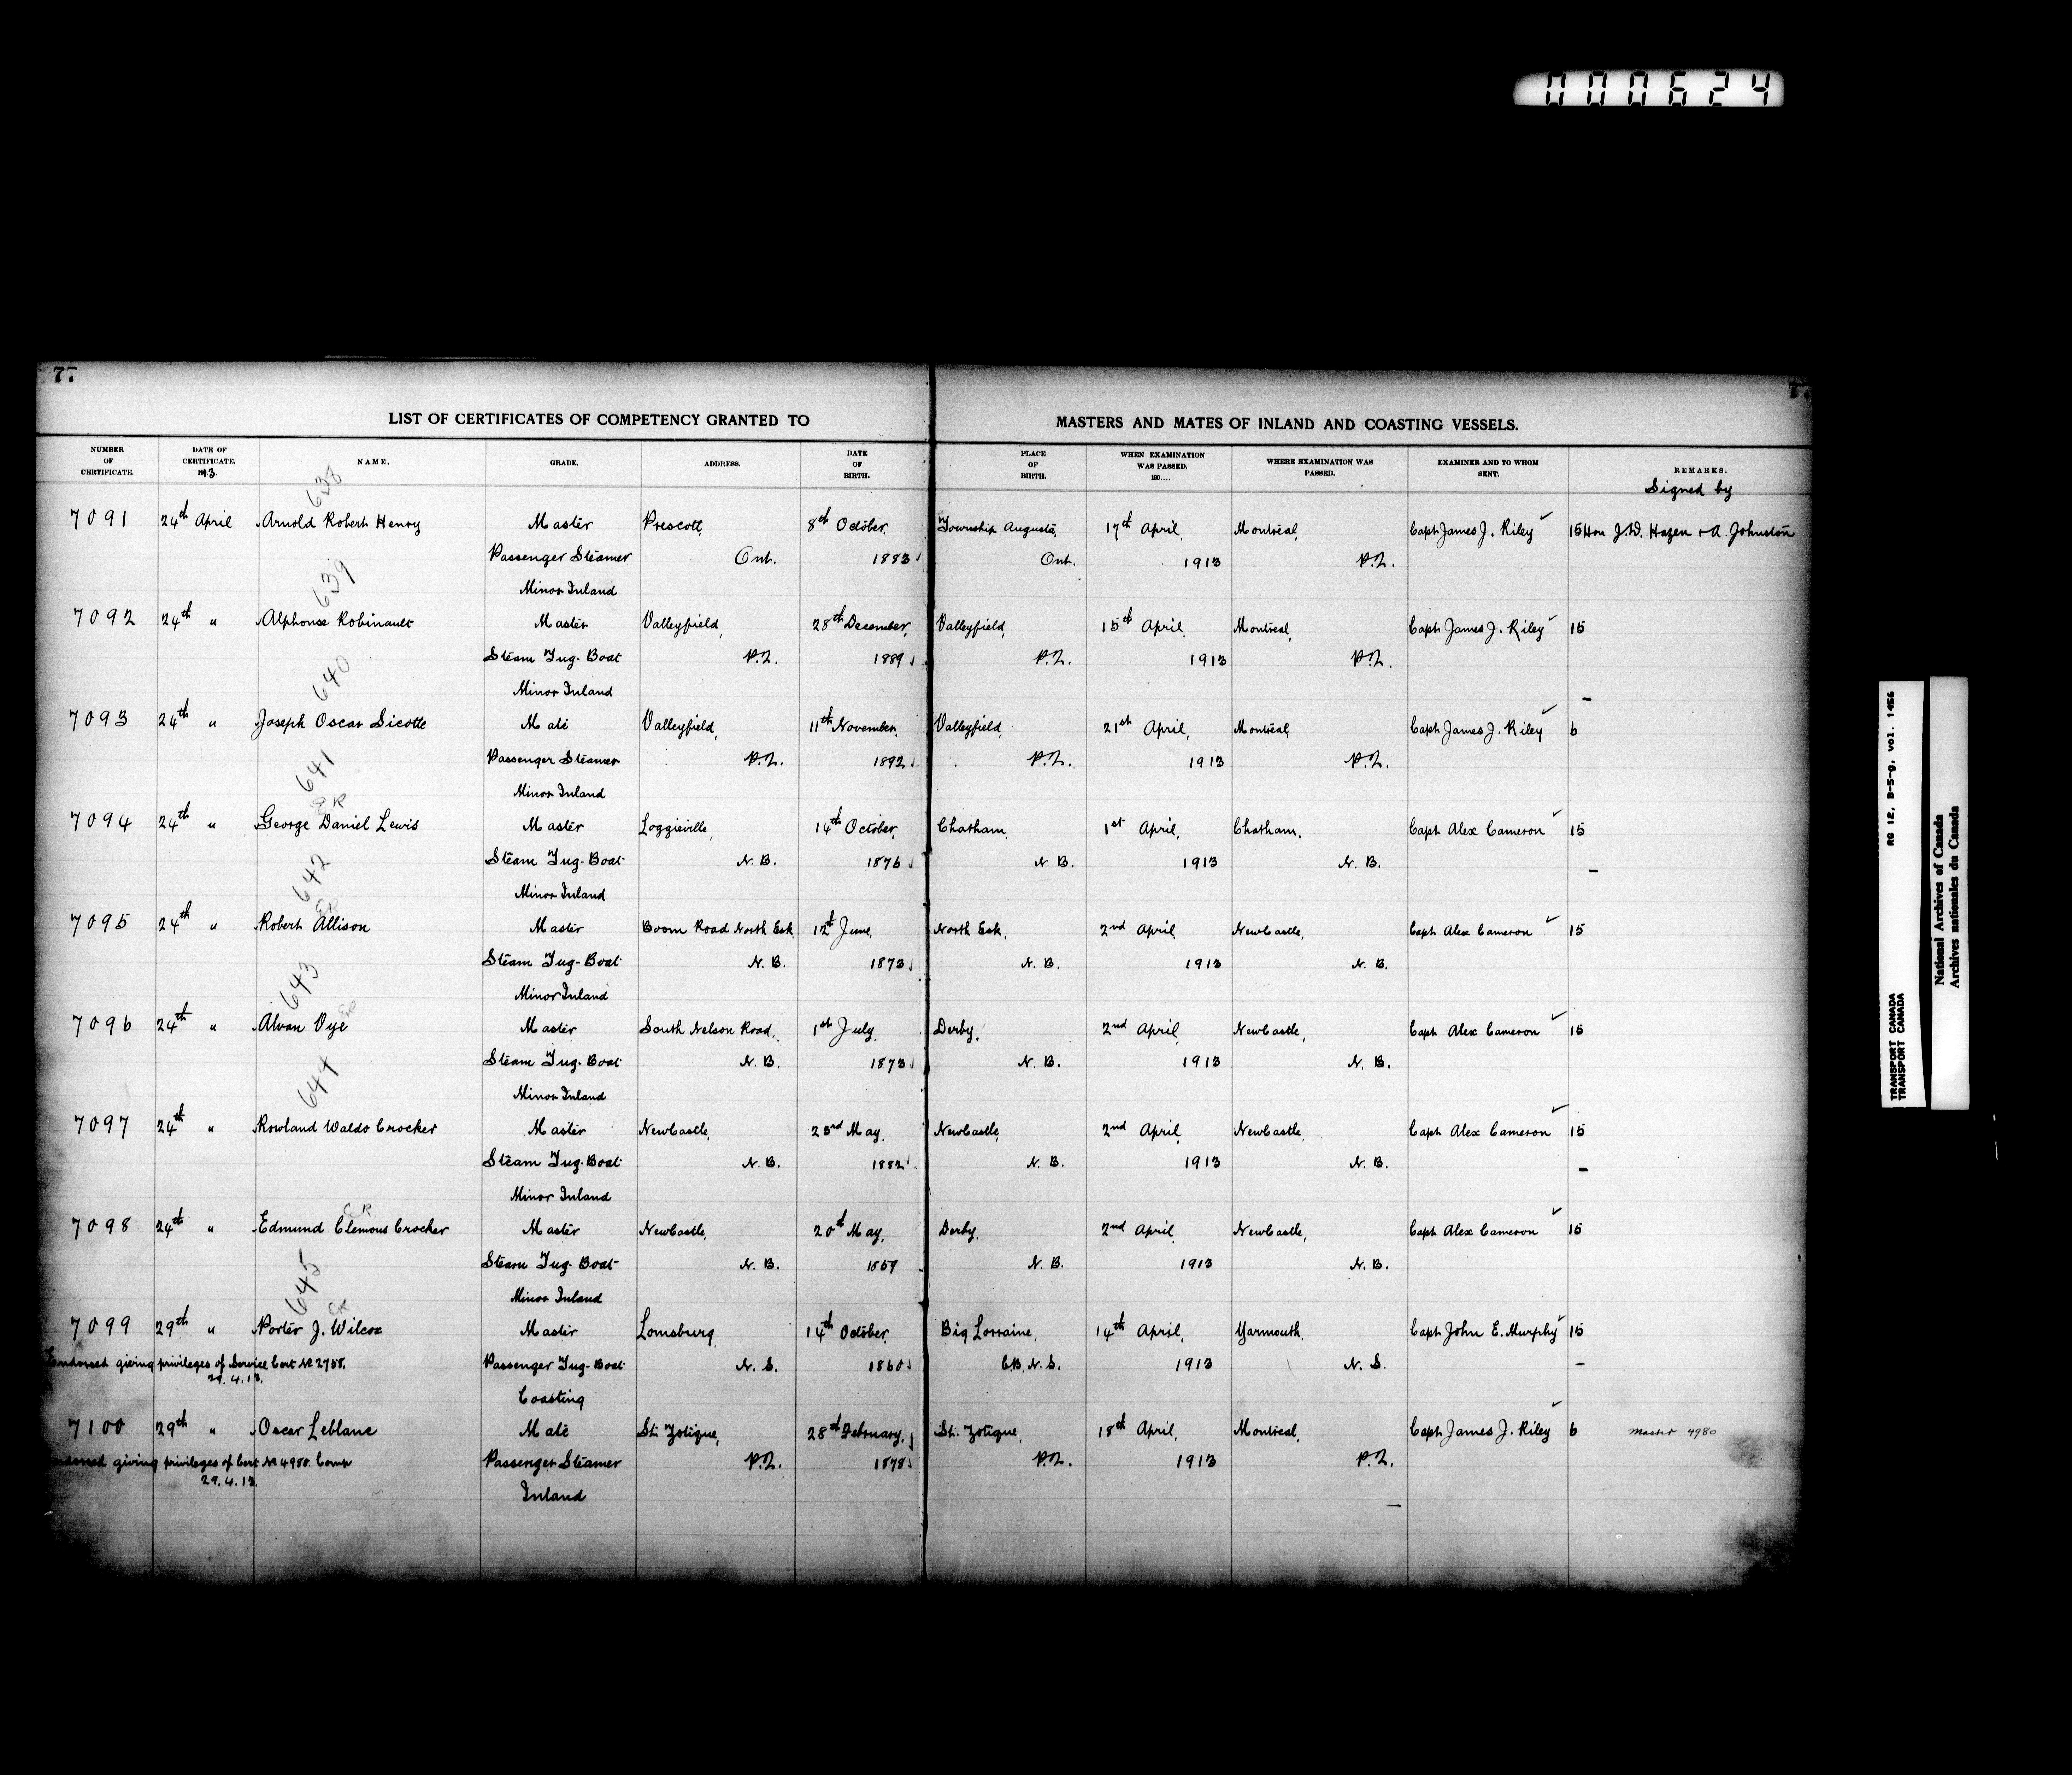 000624
77
77
LIST OF CERTIFICATES OF COMPETENCY GRANTED TO MASTERS AND MATES OF INLAND AND COASTING VESSELS.
NUMBER OF CERTIFICATE. DATE OF CERTIFICATE. 1913. NAME. GRADE. ADDRESS. DATE OF BIRTH. PLACE OF BIRTH. WHEN EXAMINATION WAS PASSED. 190.... WHERE EXAMINATION WAS PASSED. EXAMINER AND TO WHOM SENT. REMARKS.
Signed by
638
7091 24th April Arnold Robert Henry Master Prescott, 8th October, Township Augusta, 17th April, Montreal, Capt James J. Riley ✓ 15 Hon J.D. Hazen + A. Johnston
Passenger Steamer Ont. 1883 Ont. 1913 P.Q.
639
Minor Inland
7092 24th " Alphonse Robinault Master Valleyfield, 28th December, Valleyfield, 15th April, Montreal, Capt James J. Riley ✓ 15
Steam Tug-Boat P.Q. 1889 P.Q. 1913 P.Q.
640
Minor Inland
7093 24th " Joseph Oscar Sicotte Mate Valleyfield, 11th November, Valleyfield, 21st April, Montreal, Capt James J. Riley ✓ 6
Passenger Steamer P.Q. 1892 P.Q. 1913 P.Q.
641
Minor Inland
7094 24th " George Daniel Lewis Master Loggieville, 14th October, Chatham, 1st April, Chatham, Capt Alex Cameron ✓ 15
Steam Tug-Boat N.B. 1876 N.B. 1913 N.B.
642
Minor Inland
7095 24th " Robert Allison Master Boom Road North Esk, 12th June, North Esk, 2nd April, NewCastle, Capt Alex Cameron ✓ 15
Steam Tug-Boat N.B. 1873 N.B. 1913 N.B.
643
Minor Inland
7096 24th " Alvan Vye Master South Nelson Road, 1st July, Derby, 2nd April, NewCastle, Capt Alex Cameron ✓ 15
Steam Tug-Boat N.B. 1873 N.B. 1913 N.B.
644
Minor Inland
7097 24th " Rowland Waldo Crocker Master NewCastle, 23rd May, NewCastle, 2nd April, NewCastle, Capt Alex Cameron ✓ 15
Steam Tug-Boat N.B. 1882 N.B. 1913 N.B.
Minor Inland
7098 24th " Edmund Clemons Crocker Master NewCastle, 20th May, Derby, 2nd April, NewCastle, Capt Alex Cameron ✓ 15
Steam Tug-Boat N.B. N.B. 1913 N.B.
645
Minor Inland
7099 29th " Porter J. Wilcox Master 14th October, Big Lorraine, 14th April, Yarmouth, Capt John E. Murphy ✓ 15
Endorsed giving privileges of Service Cert № 2758. Passenger Tug-Boat N.S. 1860 C.B. N.S. 1913 N.S.
29.4.13.
Coasting
7100 29th " Oscar Leblanc Mate St. Zotique, 28th February, St. Zotique, 18th April, Montreal, Capt James J. Riley ✓ 6 Master 4980
Endorsed giving privileges of Cert № 4980. Comp Passenger Steamer P.Q. 1878 P.Q. 1913 P.Q.
29.4.13.
Inland
RG 12, B-5-g, vol. 1456
TRANSPORT CANADA
TRANSPORT CANADA
National Archives of Canada
Archives nationales du Canada